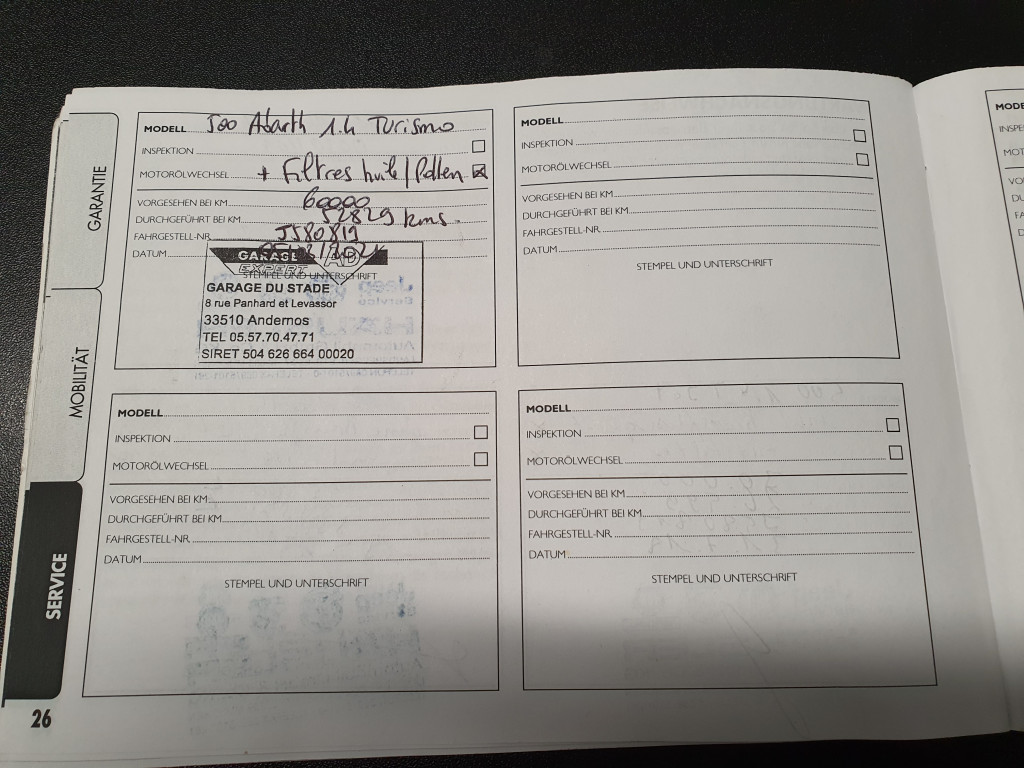 GARANTIE
MOBILITÄT
SERVICE
MODELL 500 Abarth 1.4 Turismo
INSPEKTION
MOTORÖLWECHSEL + Filtres huile/Pollen
VORGESEHEN BEI KM 60000
DURCHGEFÜHRT BEI KM 52829 kms.
FAHRGESTELL-NR. J580819
DATUM
GARAGE AD
EXPERT
STEMPEL UND UNTERSCHRIFT
GARAGE DU STADE
8 rue Panhard et Levassor
33510 Andernos
TEL 05.57.70.47.71
SIRET 504 626 664 00020
MODELL
INSPEKTION
MOTORÖLWECHSEL
VORGESEHEN BEI KM
DURCHGEFÜHRT BEI KM
FAHRGESTELL-NR.
DATUM
STEMPEL UND UNTERSCHRIFT
MODELL
INSPEKTION
MOTORÖLWECHSEL
VORGESEHEN BEI KM
DURCHGEFÜHRT BEI KM
FAHRGESTELL-NR.
DATUM
STEMPEL UND UNTERSCHRIFT
MODELL
INSPEKTION
MOTORÖLWECHSEL
VORGESEHEN BEI KM
DURCHGEFÜHRT BEI KM
FAHRGESTELL-NR.
DATUM
STEMPEL UND UNTERSCHRIFT
26